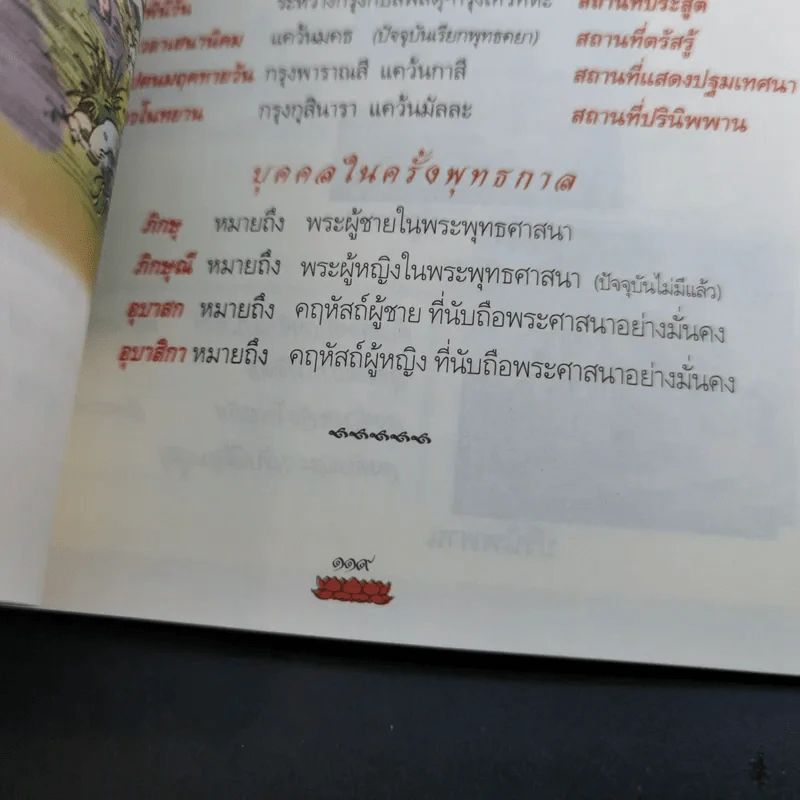 สถานที่ประสูติ
แคว้นมคธ (ปัจจุบันเรียกพุทธคยา) สถานที่ตรัสรู้
กรุงพาราณสี แคว้นกาสี สถานที่แสดงปฐมเทศนา
กรุงกุสินารา แคว้นมัลละ สถานที่ปรินิพพาน
บุคคลในครั้งพุทธกาล
ภิกษุ หมายถึง พระผู้ชายในพระพุทธศาสนา
ภิกษุณี หมายถึง พระผู้หญิงในพระพุทธศาสนา (ปัจจุบันไม่มีแล้ว)
อุบาสก หมายถึง คฤหัสถ์ผู้ชาย ที่นับถือพระศาสนาอย่างมั่นคง
อุบาสิกา หมายถึง คฤหัสถ์ผู้หญิง ที่นับถือพระศาสนาอย่างมั่นคง
๑๑๙